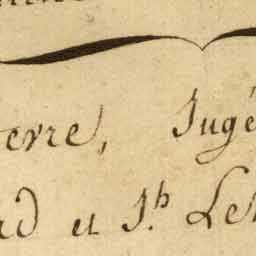 erre, Jugé
rd et J.h Le